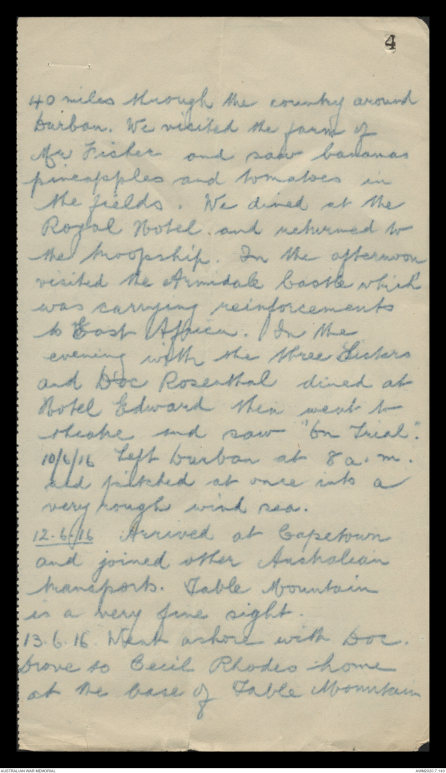 4
40 miles through the country around
Durban. We visited the farm of
Mr Fisher and saw bananas
pineapples and tomatoes in
the fields. We dined at the
Royal Hotel and returned to
the troopship. In the afternoon
visited the Armidale Castle which
was carrying reinforcements
to East Africa. In the
evening with the three Sisters
and Doc Rosenthal dined at
Hotel Edward then went to
theatre and saw "On Trial".
10/6/16 Left Durban at 8 a.m.
and pitched at once into a
very rough wind sea.
12.6.16 Arrived at Capetown
and joined other Australian
transports. Table Mountain
is a very fine sight.
13.6.16. Went ashore with Doc.
Drove to Cecil Rhodes home
at the base of Table Mountain
AUSTRALIAN WAR MEMORIAL